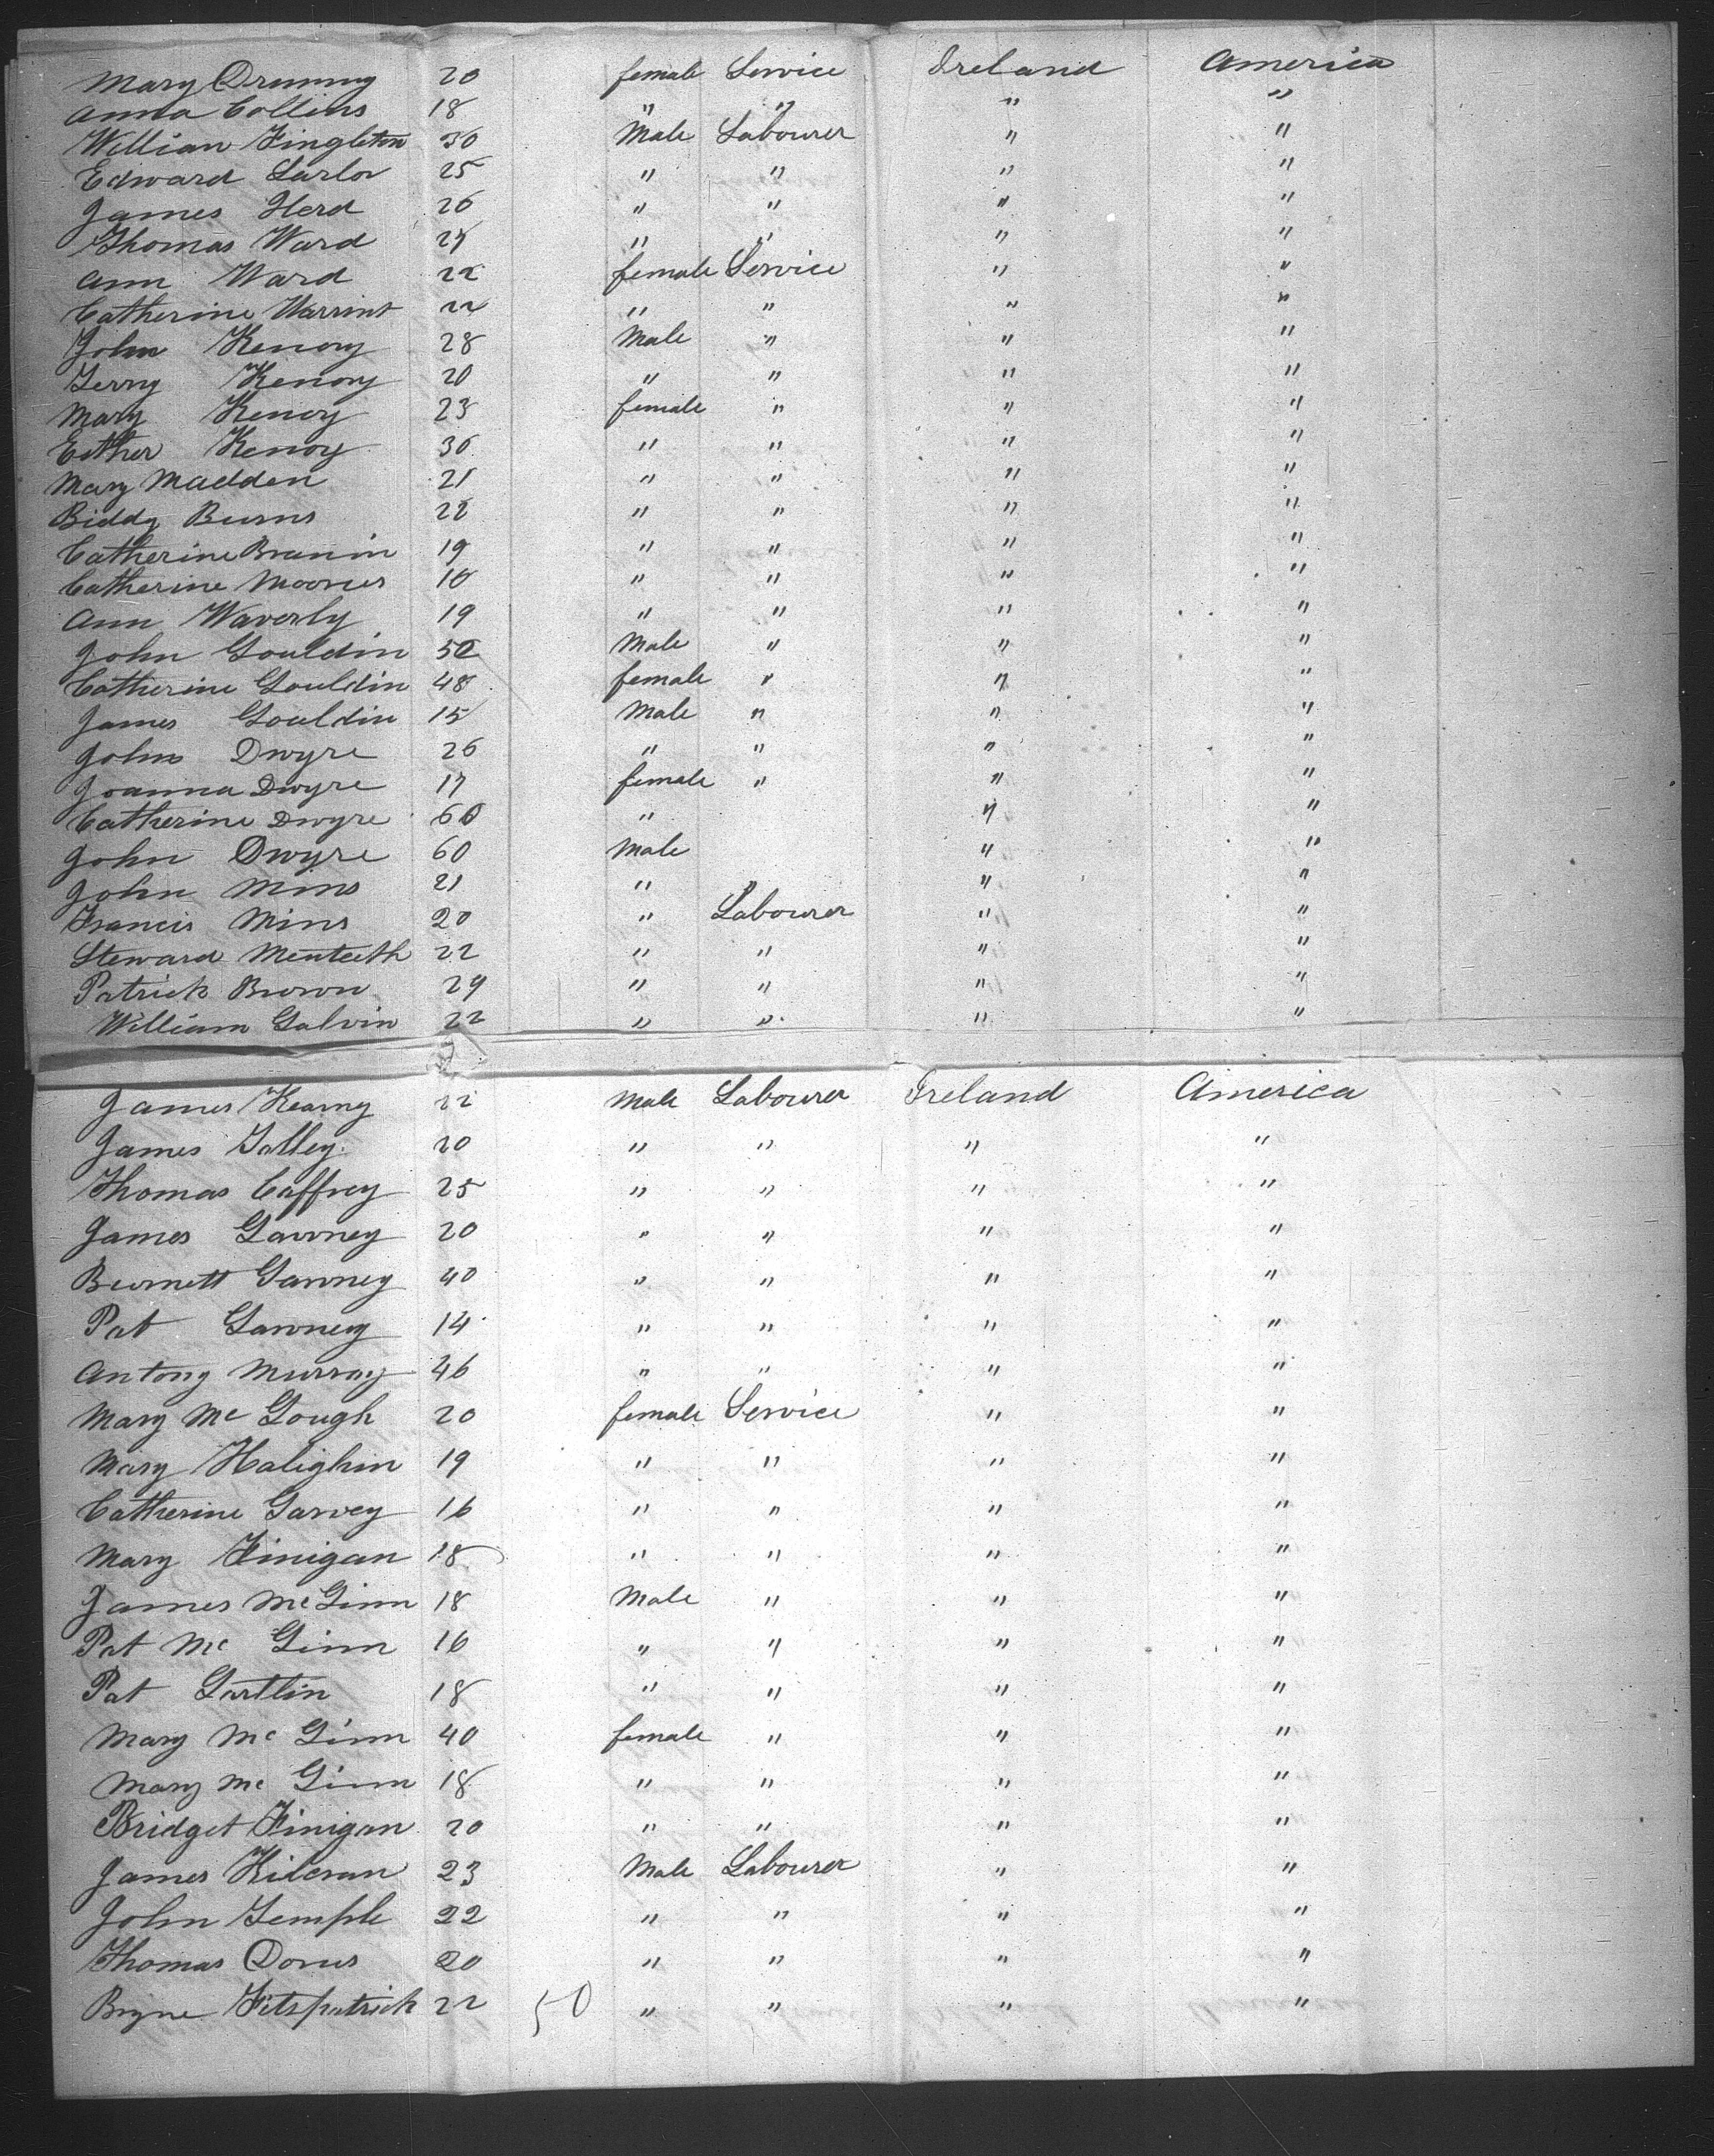 Mary Drumny 20 female Service Ireland America
Anna Collins 18 " " " "
William Fingleton 30 Male Labourer " "
Edward Larlor 25 " " " "
James Herd 26 " " " "
Thomas Ward 24 " " " "
Ann Ward 22 female Service " "
Catherine Warrint 22 " " " "
John Kenory 28 Male " " "
Jerry Kenory 20 " " " "
Mary Kenoy 23 female " " "
Esther Kenoy 30 " " " "
Mary Madden 21 " " " "
Biddy Burns 22 " " " "
Catherine Branin 19 " " " "
Catherine Mooner 18 " " " "
Ann Waverly 19 " " " "
John Gouldin 50 Male " " "
Catherine Gouldin 48 female " " "
James Gouldin 15 Male " " "
John Dwyre 26 " " " "
Joanna Dwyre 17 female " " "
Catherine Dwyre 60 " " "
John Dwyre 60 Male " "
John Mins 21 " " " "
Francis Mins 20 " Labourer " "
Steward Menteith 22 " " " "
Patrick Brown 29 " " " "
William Galvin 22 " " " "
James Kearny 22 Male Labourer Ireland America
James Tolley 20 " " " "
Thomas Caffrey 25 " " " "
James Gawney 20 " " " "
Burnett Gawney 40 " " " "
Pat Gawney 14 " " " "
Antony Murray 46 " " " "
Mary Mc Gough 20 female Service " "
Mary Halighin 19 " " " "
Catherine Garvey 16 " " " "
Mary Finigan 18 " " " "
James Mc Ginn 18 Male " " "
Pat Mc Ginn 16 " " " "
Pat Gartlin 18 " " " "
Mary Mc Ginn 40 female " " "
Mary Mc Ginn 18 " " " "
Bridget Finigan 20 " " " "
James Kilcran 23 Male Labourer " "
John Temple 22 " " " "
Thomas Dorus 20 " " " "
Bryne Fitspatrick 22 50 " " " "